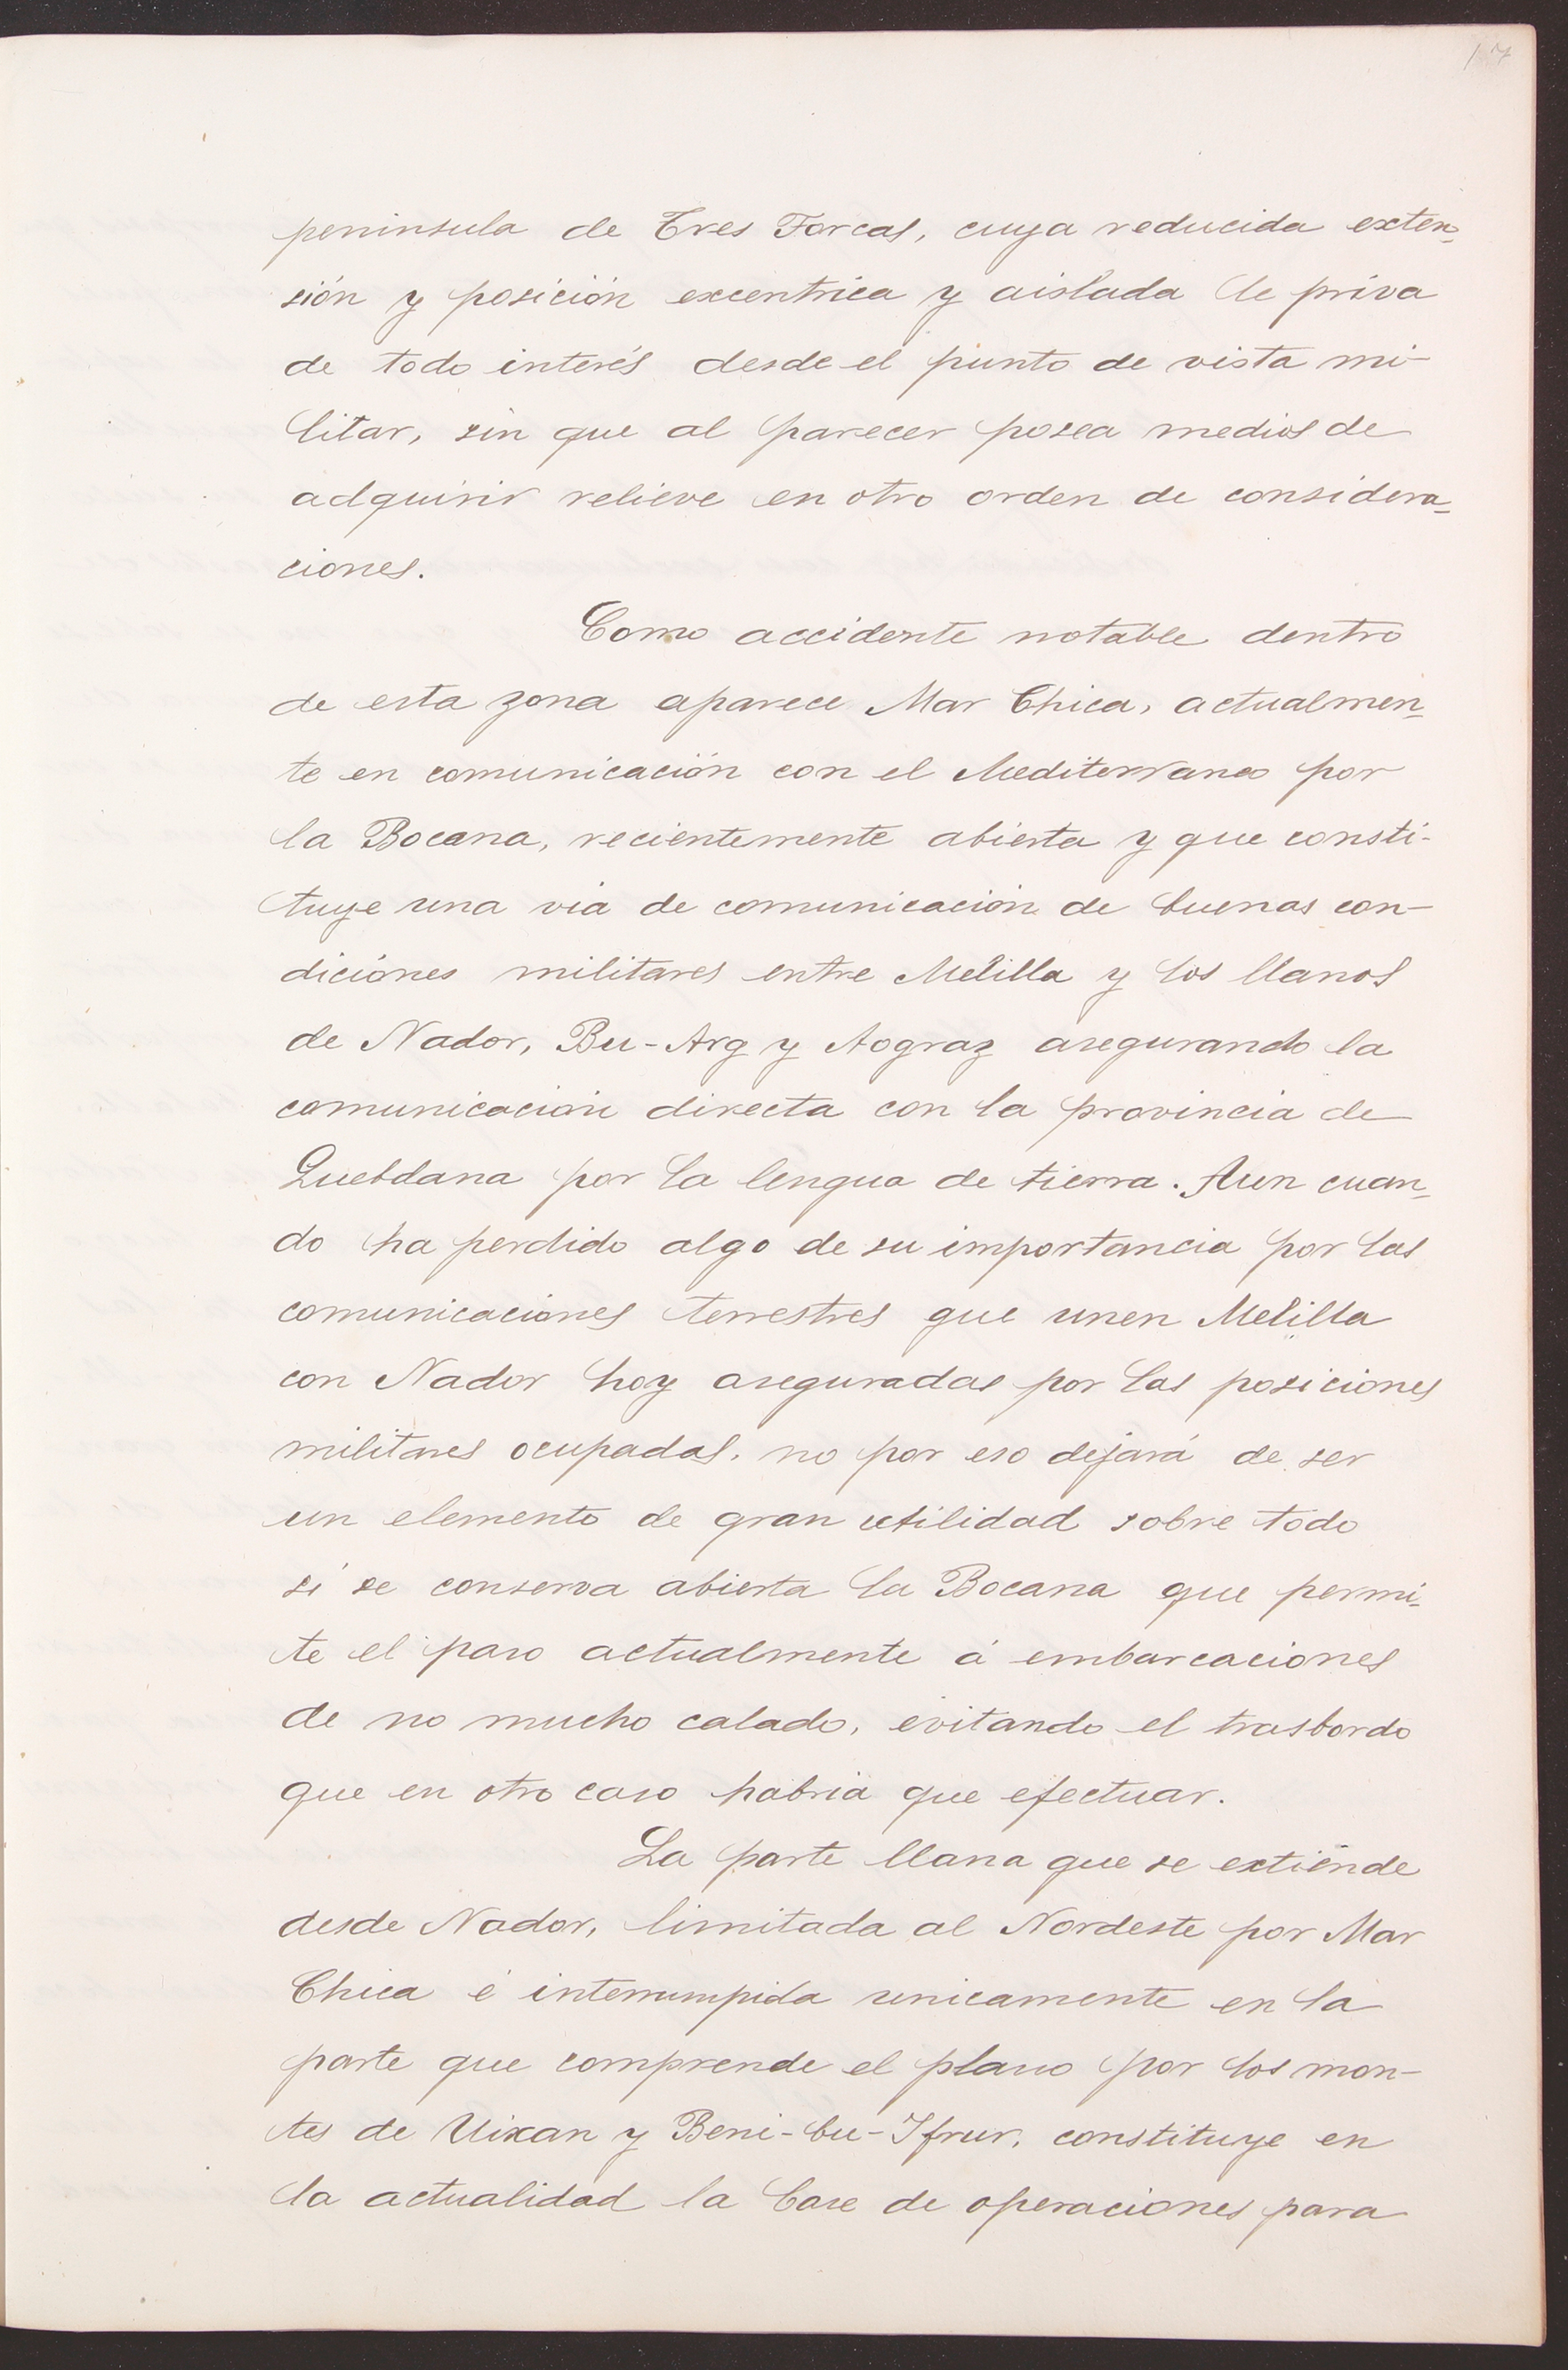 17
peninsula de Tres Forcas, cuya reducida exten-
sión y posición excentrica y aislada le priva
de todo interés desde el punto de vista mi-
litar, sin que al parecer posea medios de
adquirir relieve en otro orden de considera-
ciones.
Como accidente notable dentro
de esta zona aparece Mar Chica, actualmen-
te en comunicación con el Mediterraneo por
la Bocana, recientemente abierta y que consti-
tuye una via de comunicación de buenas con-
diciónes militares entre Melilla y los llanos
de Nador, Bu-Arg y Aograz asegurando la
comunicación directa con la provincia de
Quebdana por la lengua de tierra. Aun cuan-
do ha perdido algo de su importancia por las
comunicaciones terrestres que unen Melilla
con Nador hoy aseguradas por las posiciones
militares ocupadas, no por eso dejará de ser
un elemento de gran utilidad sobre todo
si se conserva abierta la Bocana que permi-
te el paso actualmente á embarcaciones
de no mucho calado, evitando el trasbordo
que en otro caso habria que efectuar.
La parte llana que se extiende
desde Nador, limitada al Nordeste por Mar
Chica é interrumpida unicamente en la
parte que comprende el plano por los mon-
tes de Uixan y Beni-bu-Ifrur, constituye en
la actualidad la base de operaciones para